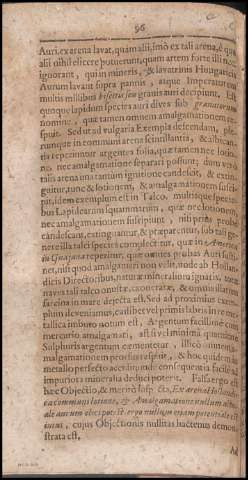 96
Auri, ex arena lavat, quam alii, imò ex tali arena, è qua
alii nihil elicere potuerunt, quam artem forte illi non
ignorant, qui in mineris, & lavatrinis Hungaricis
Aurum lavant supra pannis, atque Imperatorem
multis millibus granis auri decipiunt, Est
quoque lapidum species auri dives sub granatorum
nomine, quæ tamen omnem amalgamationem re-
spuit. Sed ut ad vulgaria Exempla descendam, ple-
runque in communi arena scintillantia, & albican-
tia reperiuntur argentea folia, quæ tamen nec lotio-
ne, nec amalgamatione separari possunt; dum verò
talis arena tantum ignitione candescit, & extin-
guitur, tunc & lotionem, & amalgamationem susci-
pit, idem exemplum est in Talco, multisque speciebus
Lapidearum squammarum, quæ nec lotionem,
nec amalgamationem suscipiunt, nisi prius probè
candescant, extinguantur, & præparentur, sub tali ge-
nere illa talci species complectitur, quæ in America
in Guajana reperitur, quæ omnes probas Auri susti-
net, nisi quod amalgamari non velit, unde ab Hollan-
dicis Directoribus, naturæ mineralium ignaris, totæ
naves tali talco onustæ, exoneratæ, & omnis illarum
sarcina in mare dejecta est. Sed ad proximius exem-
plum deveniamus, cuilibet vel primis labris in re me-
tallica imbuto notum est, Argentum facillimè cum
mercurio amalgamari, ast si vel minima quantitate
Sulphuris argentum cæmentetur, illicò omnem
amalgamationem prorsus respuit, & hoc quidem in
metallo perfecto accidit, unde consequentia facilè ad
impuriora mineralia deduci poterit. Falsa ergo est
hæc Objectio, & meritò suspecta, Ex arena Hollandi-
ca communi lotione, & Amalgamatione nullum aut
male aurum elici potest. ergo nullum etiam potentiale est
in illa, cujus Objectionis nullitas hactenus demon-
strata est.
Ad